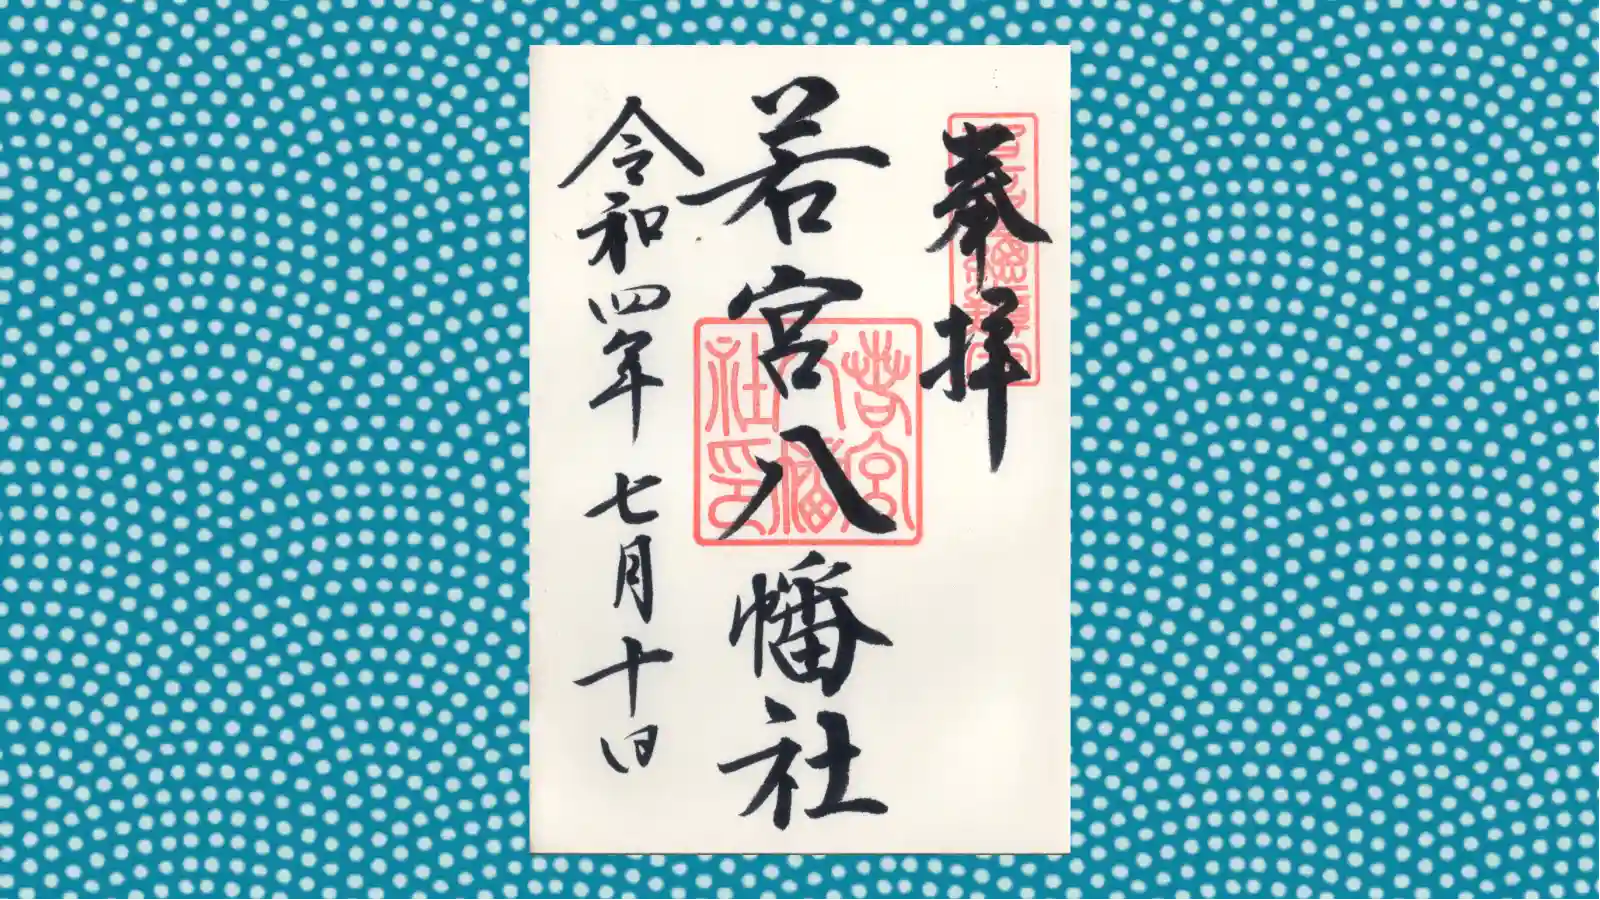 奉拝
若宮八幡社
若宮
八幡
社印
令和四年七月十日